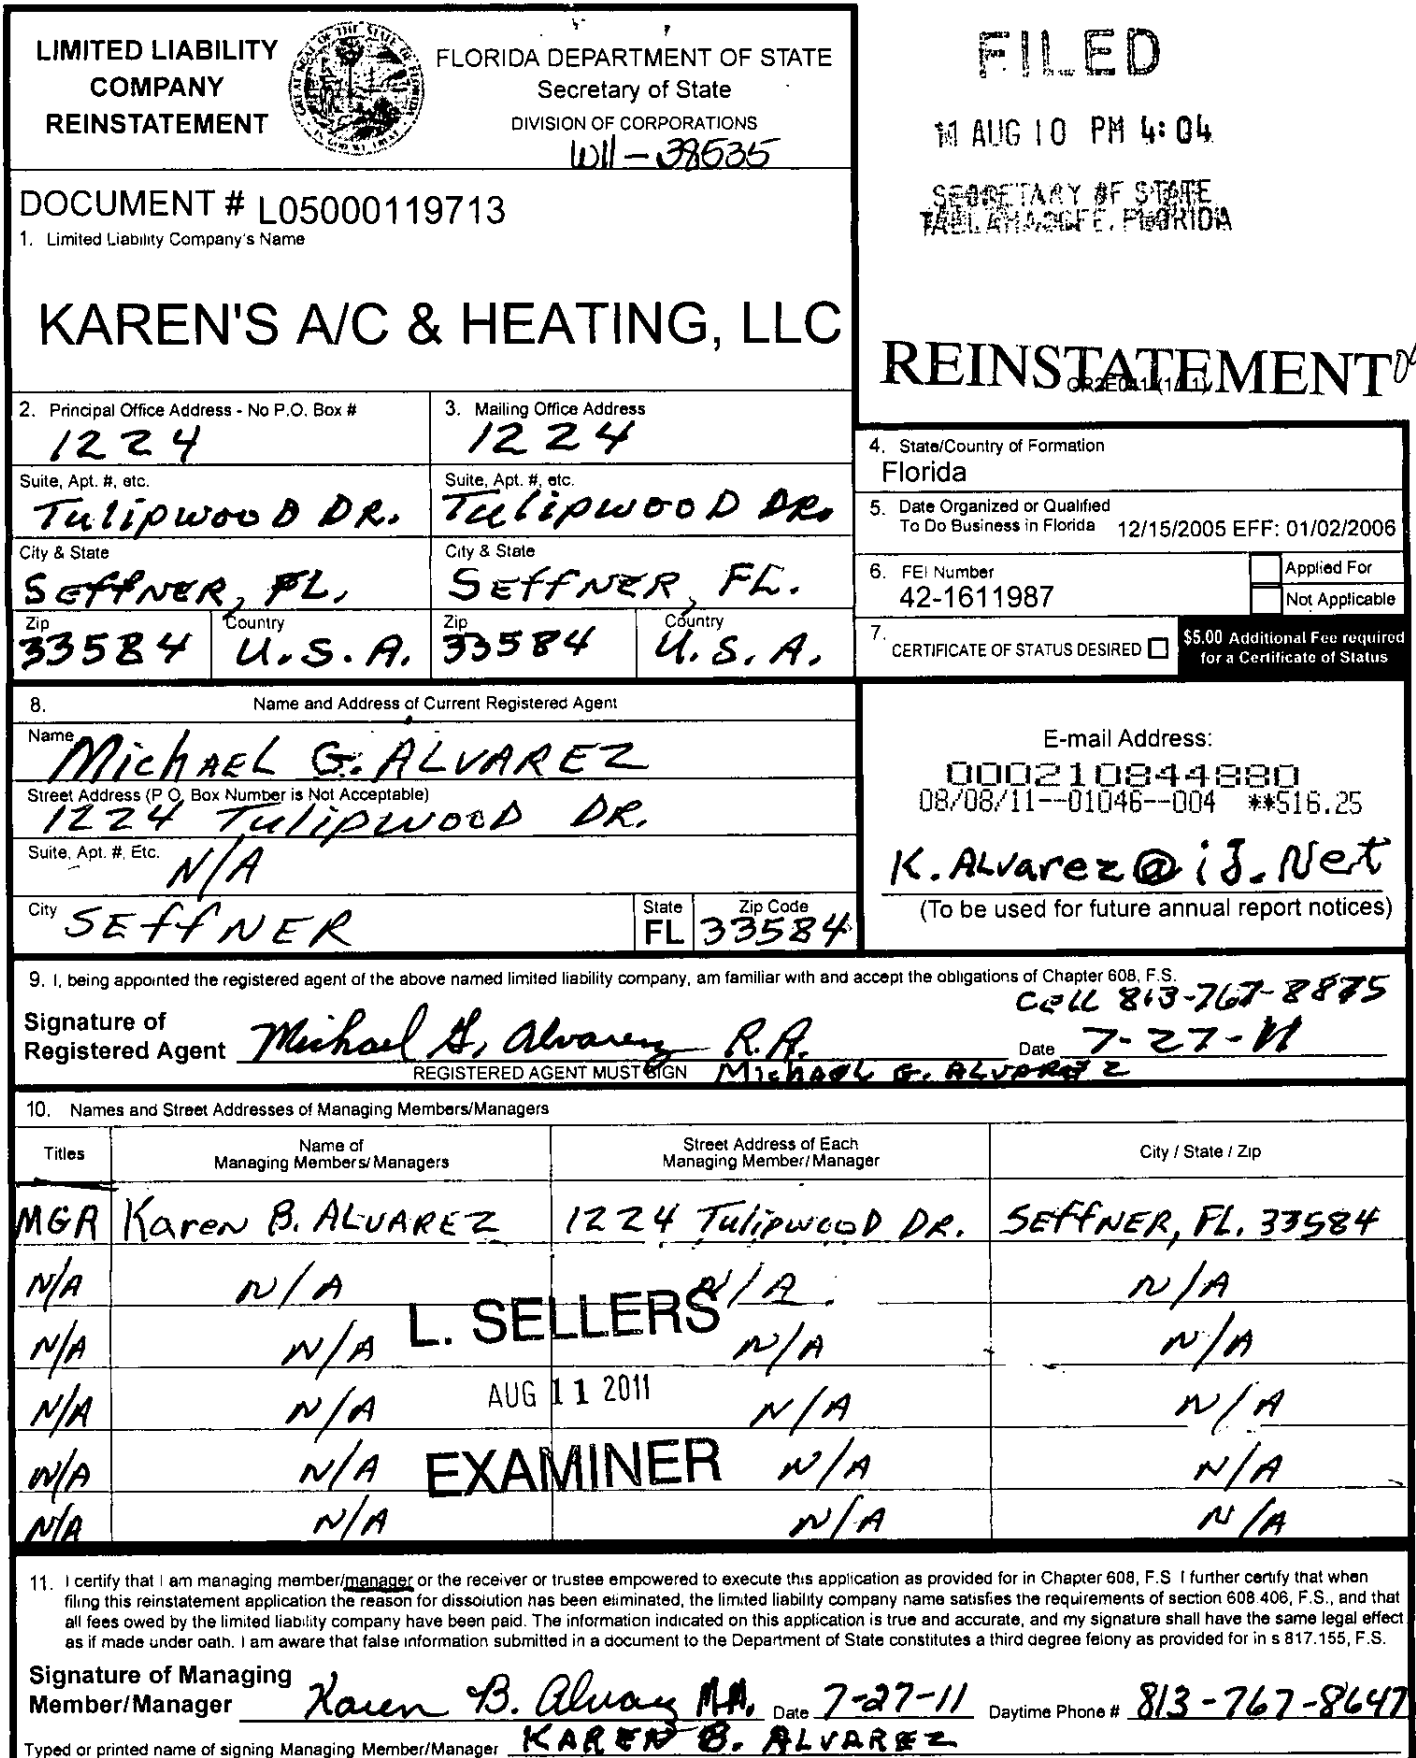 LIMITED LIABILITY
COMPANY
REINSTATEMENT
FLORIDA DEPARTMENT OF STATE
Secretary of State
DIVISION OF CORPORATIONS
W11-38535
FILED
11 AUG 10 PM 4:04
SECRETARY OF STATE
TALLAHASSEE, FLORIDA
DOCUMENT # L05000119713
1. Limited Liability Company's Name
KAREN'S A/C & HEATING, LLC
REINSTATEMENT
2. Principal Office Address - No P.O. Box #
1224
3. Mailing Office Address
1224
Suite, Apt. #, etc.
Tulipwood DR.
Suite, Apt. #, etc.
Tulipwood DR.
City & State
Seffner, FL.
City & State
Seffner, FL.
Zip
33584
Country
U.S.A.
Zip
33584
Country
U.S.A.
4. State/Country of Formation
Florida
5. Date Organized or Qualified
To Do Business in Florida 12/15/2005 EFF: 01/02/2006
6. FEI Number
42-1611987
Applied For
Not Applicable
7. CERTIFICATE OF STATUS DESIRED
$5.00 Additional Fee required
for a Certificate of Status
8. Name and Address of Current Registered Agent
Name
Michael G. ALVAREZ
Street Address (P.O. Box Number is Not Acceptable)
1224 Tulipwood DR.
Suite, Apt. #, Etc.
N/A
City
SEffNER
State
FL
Zip Code
33584
E-mail Address:
000210844880
08/08/11--01046--004 **516.25
K.ALvarez@ij.Net
(To be used for future annual report notices)
9. I, being appointed the registered agent of the above named limited liability company, am familiar with and accept the obligations of Chapter 608, F.S.
Cell 813-767-8875
Signature of
Registered Agent Michael G. Alvarez R.A. Date 7-27-11
REGISTERED AGENT MUST SIGN Michael G. ALVAREZ
10. Names and Street Addresses of Managing Members/Managers
Titles
Name of
Managing Members/Managers
Street Address of Each
Managing Member/Manager
City / State / Zip
MGR Karen B. ALVAREZ 1224 Tulipwood DR. SEffNER, FL. 33584
N/A N/A N/A N/A
L. SELLERS
N/A N/A N/A N/A
AUG 11 2011
N/A N/A N/A N/A
EXAMINER
N/A N/A N/A N/A
N/A N/A N/A N/A
11. I certify that I am managing member/manager or the receiver or trustee empowered to execute this application as provided for in Chapter 608, F.S I further certify that when
filing this reinstatement application the reason for dissolution has been eliminated, the limited liability company name satisfies the requirements of section 608.406, F.S., and that
all fees owed by the limited liability company have been paid. The information indicated on this application is true and accurate, and my signature shall have the same legal effect
as if made under oath. I am aware that false information submitted in a document to the Department of State constitutes a third degree felony as provided for in s 817.155, F.S.
Signature of Managing
Member/Manager Karen B. Alvarez Date 7-27-11 Daytime Phone # 813-767-8647
Typed or printed name of signing Managing Member/Manager KAREN B. ALVAREZ